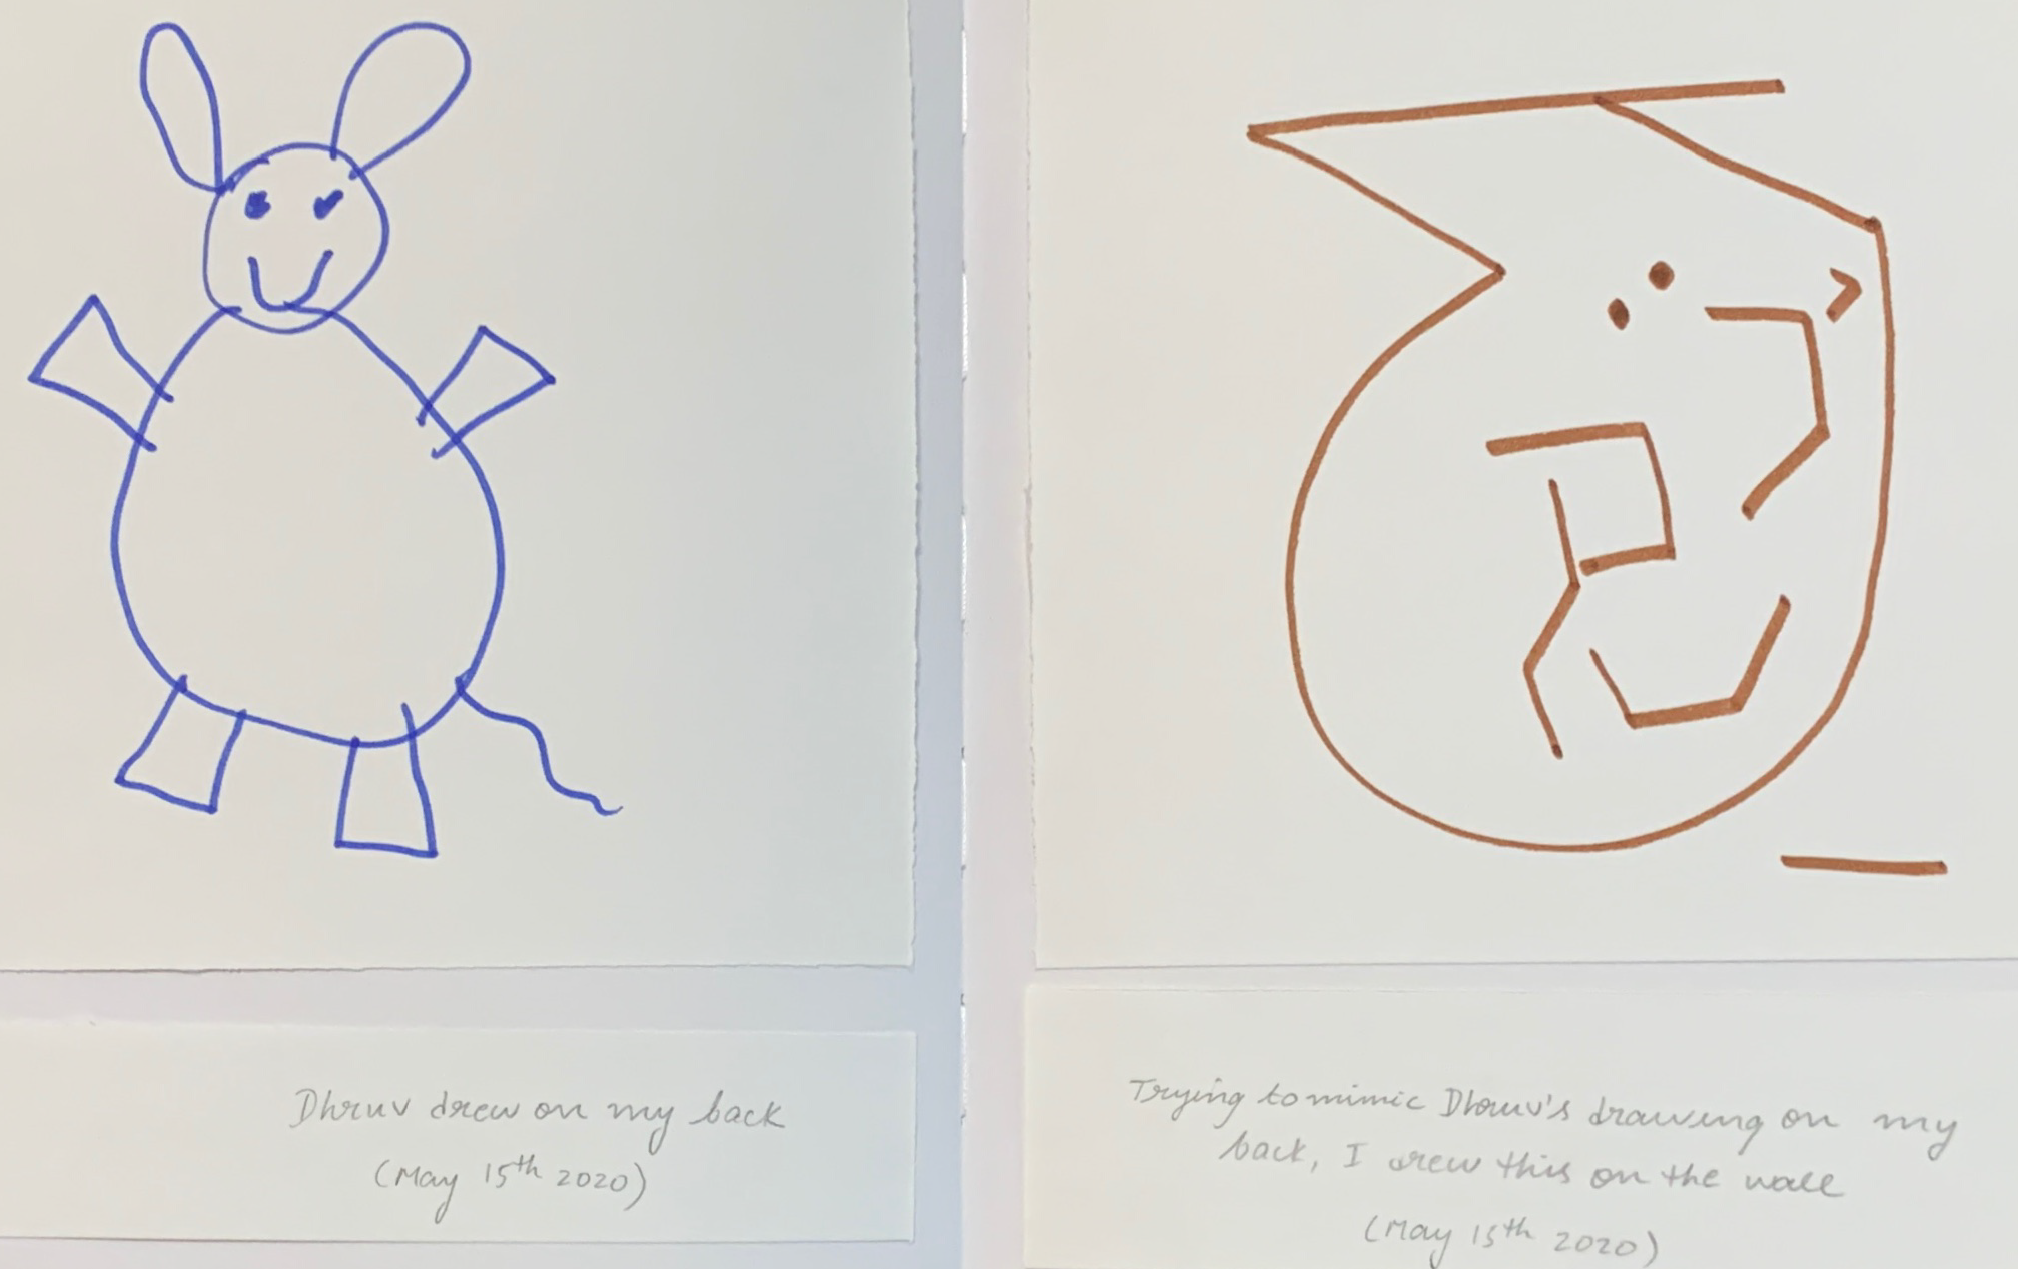 Dhruv drew on my back
(May 15th 2020)
Trying to mimic Dhruv's drawing on my
back, I drew this on the wall
(May 15th 2020)